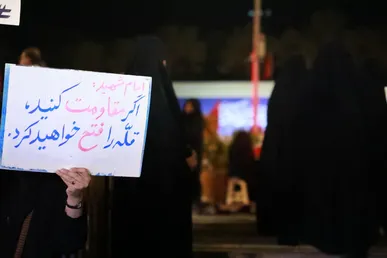 امام شهید:
اگر مقاومت کنید،
قلّه را فتح خواهید کرد.